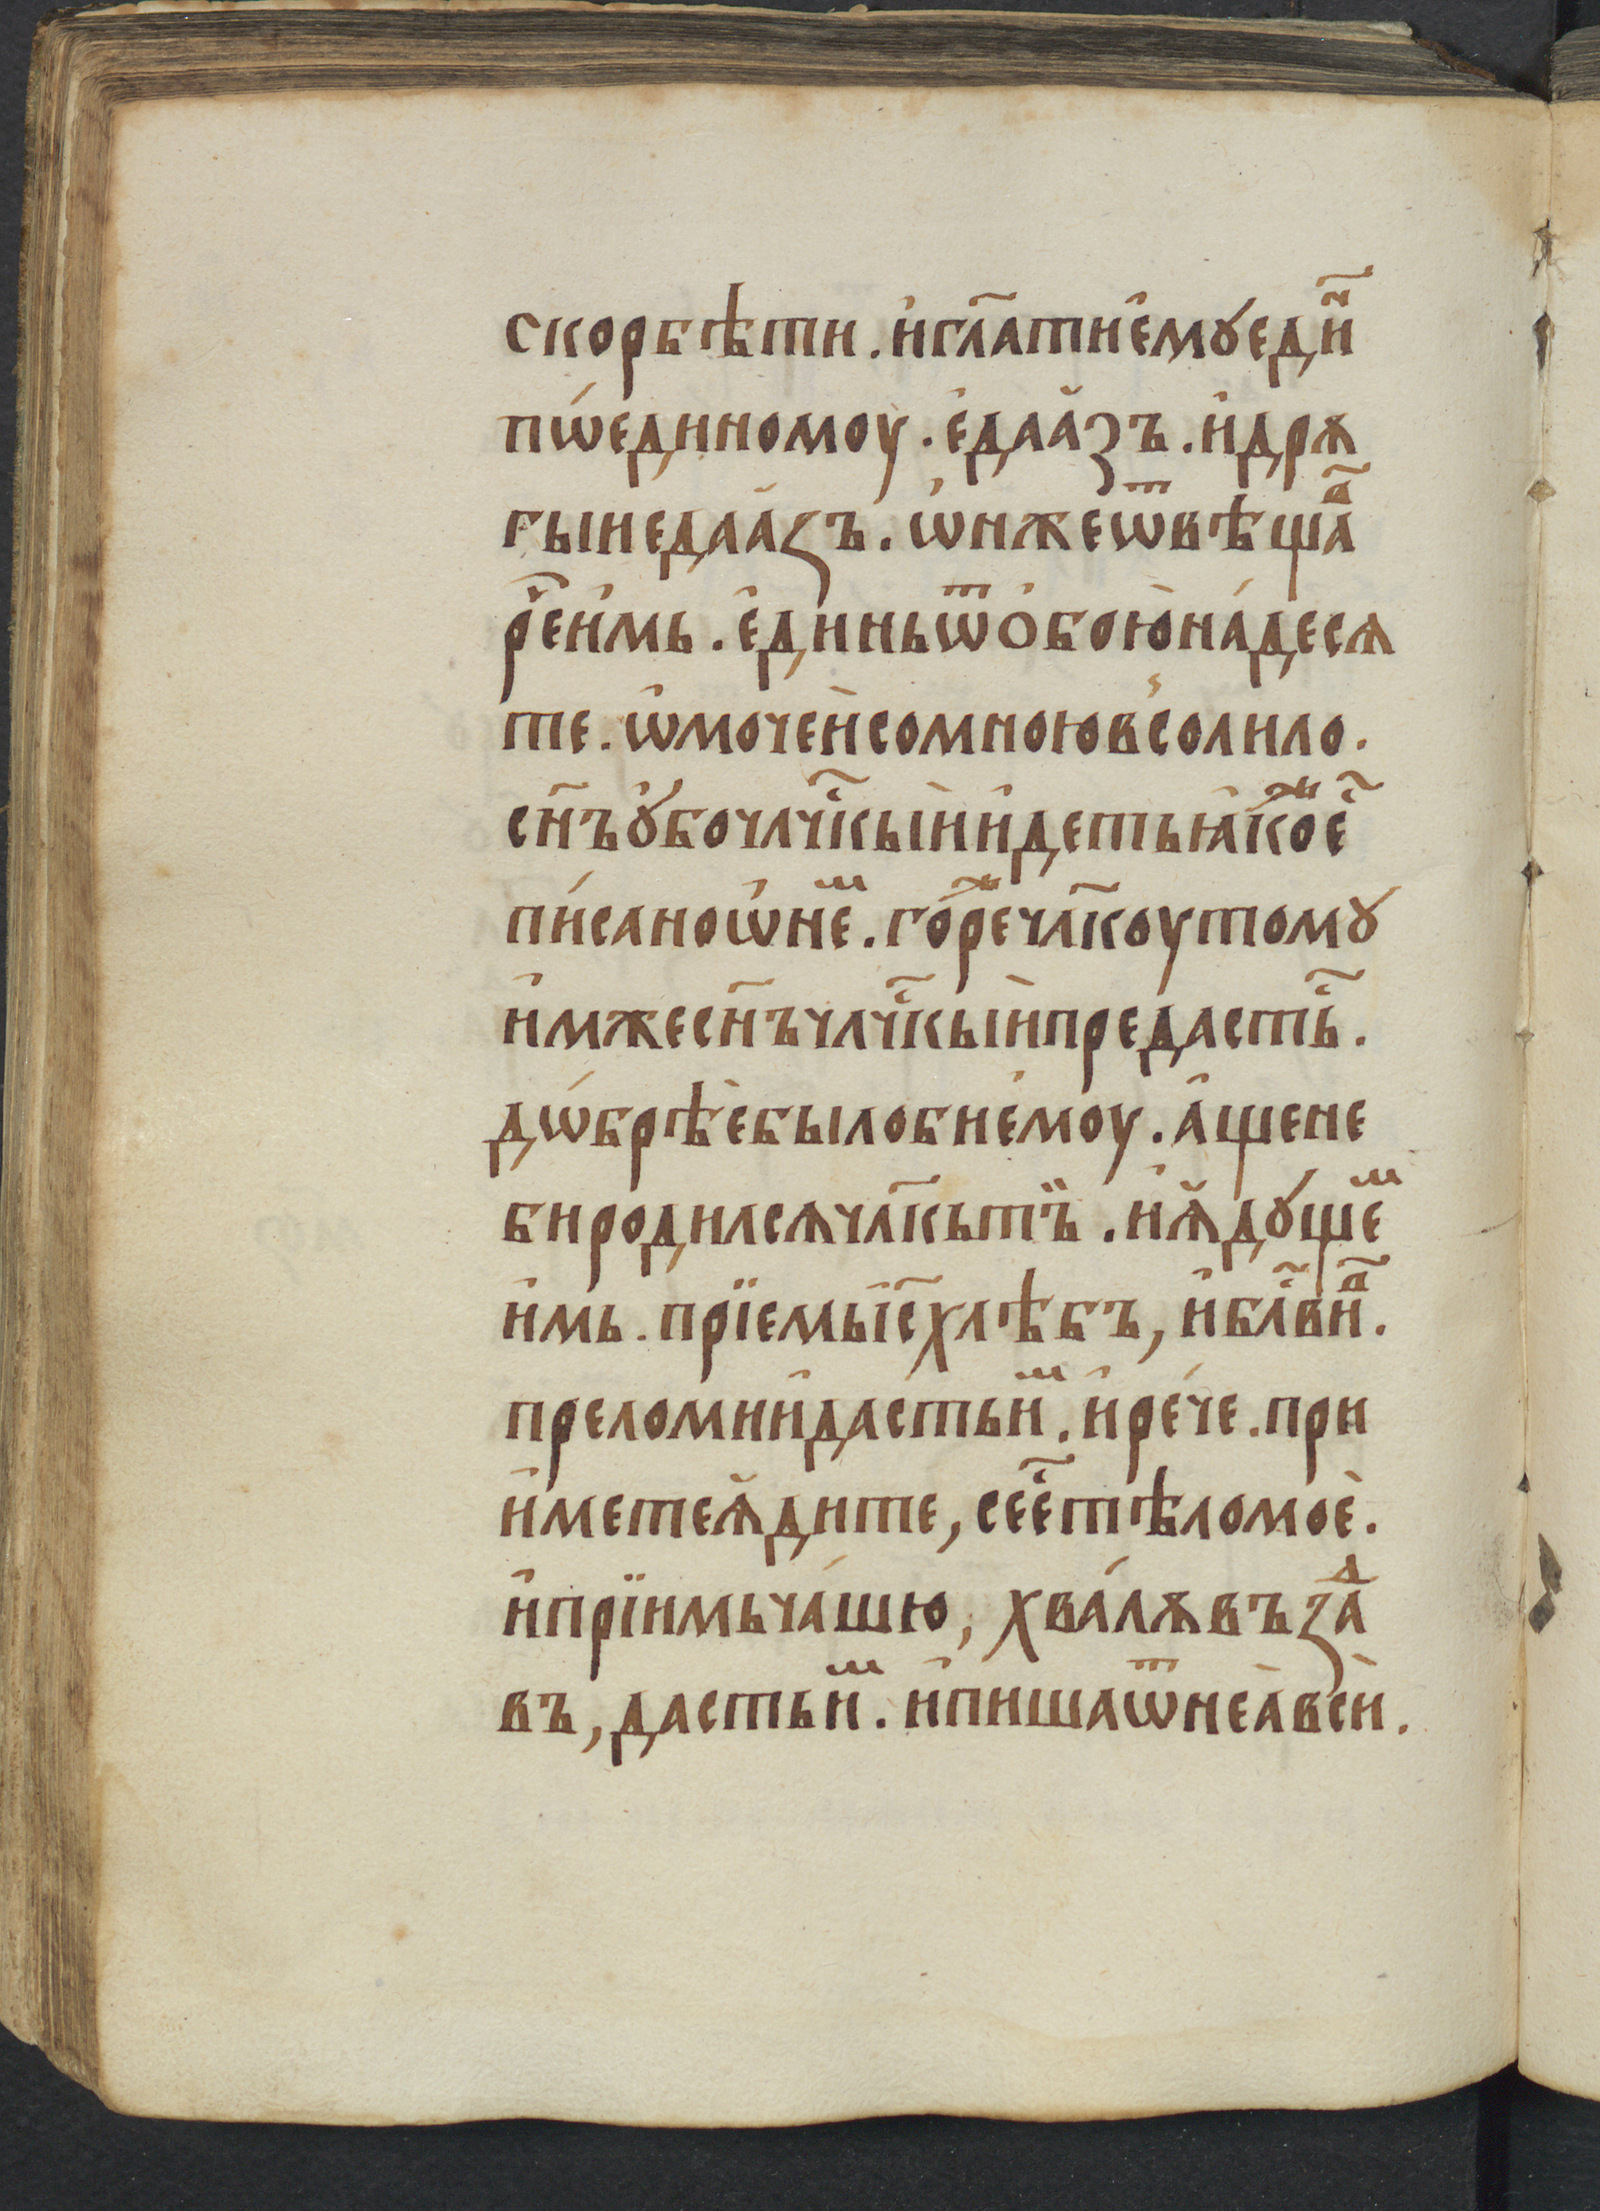 скорбѣти . и҆гл҃атиє҆мꙋєди҃ⁿ
пѡ́єдиномоу . є҆даа҆зъ . и҆дрѧ
гыиєдаа҆зъ . ѡ҆нжеѿвѣщаⷡ҇
рⷱ҇еи҆мь . є҆диньѿо҆бою̀на́десѧ
те . ѡ҆мочеи҆сомноювⸯсолило .
сн҃ъꙋ҆бочлч҇кыи҆и҆детьꙗ҆́коⷤєⷭ҇
пи́саноѡ҆неⷨ . го́реⷤчл҃коутомꙋ
и҆мжесн҃ъчлч҇кыи҆предастьⷭ҇ .
дѡ́брѣебылобиє҆моу . а҆щене
биродилсѧчл҃кътъ̈ . и҆ꙗ҆дꙋщеⷨ
и҆мь . прїємьїс҃хлѣбъ , и҆бл҃виⷡ҇ .
преломии҆да́стьиⷨ . и҆ре́че . при
и҆метеꙗ҆дите , сеєⷭ҇тѣломоѐ .
и҆прїимьча́шю , хва́лѫвъзаⷣ
въ , дастьиⷨ . и҆пи́шаѿнеꙗ҆всѝ .